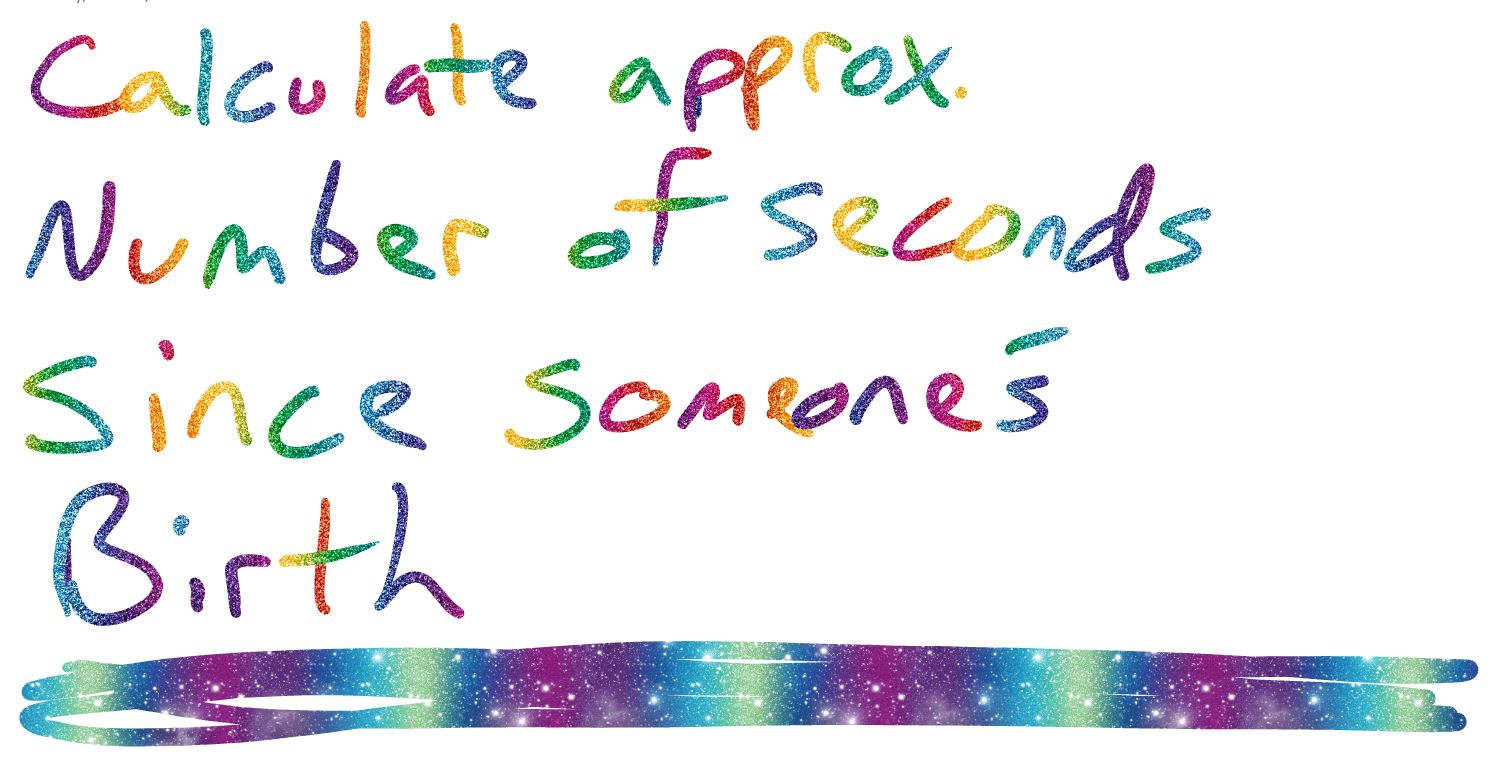 Calculate approx.
Number of seconds
Since Someone's
Birth